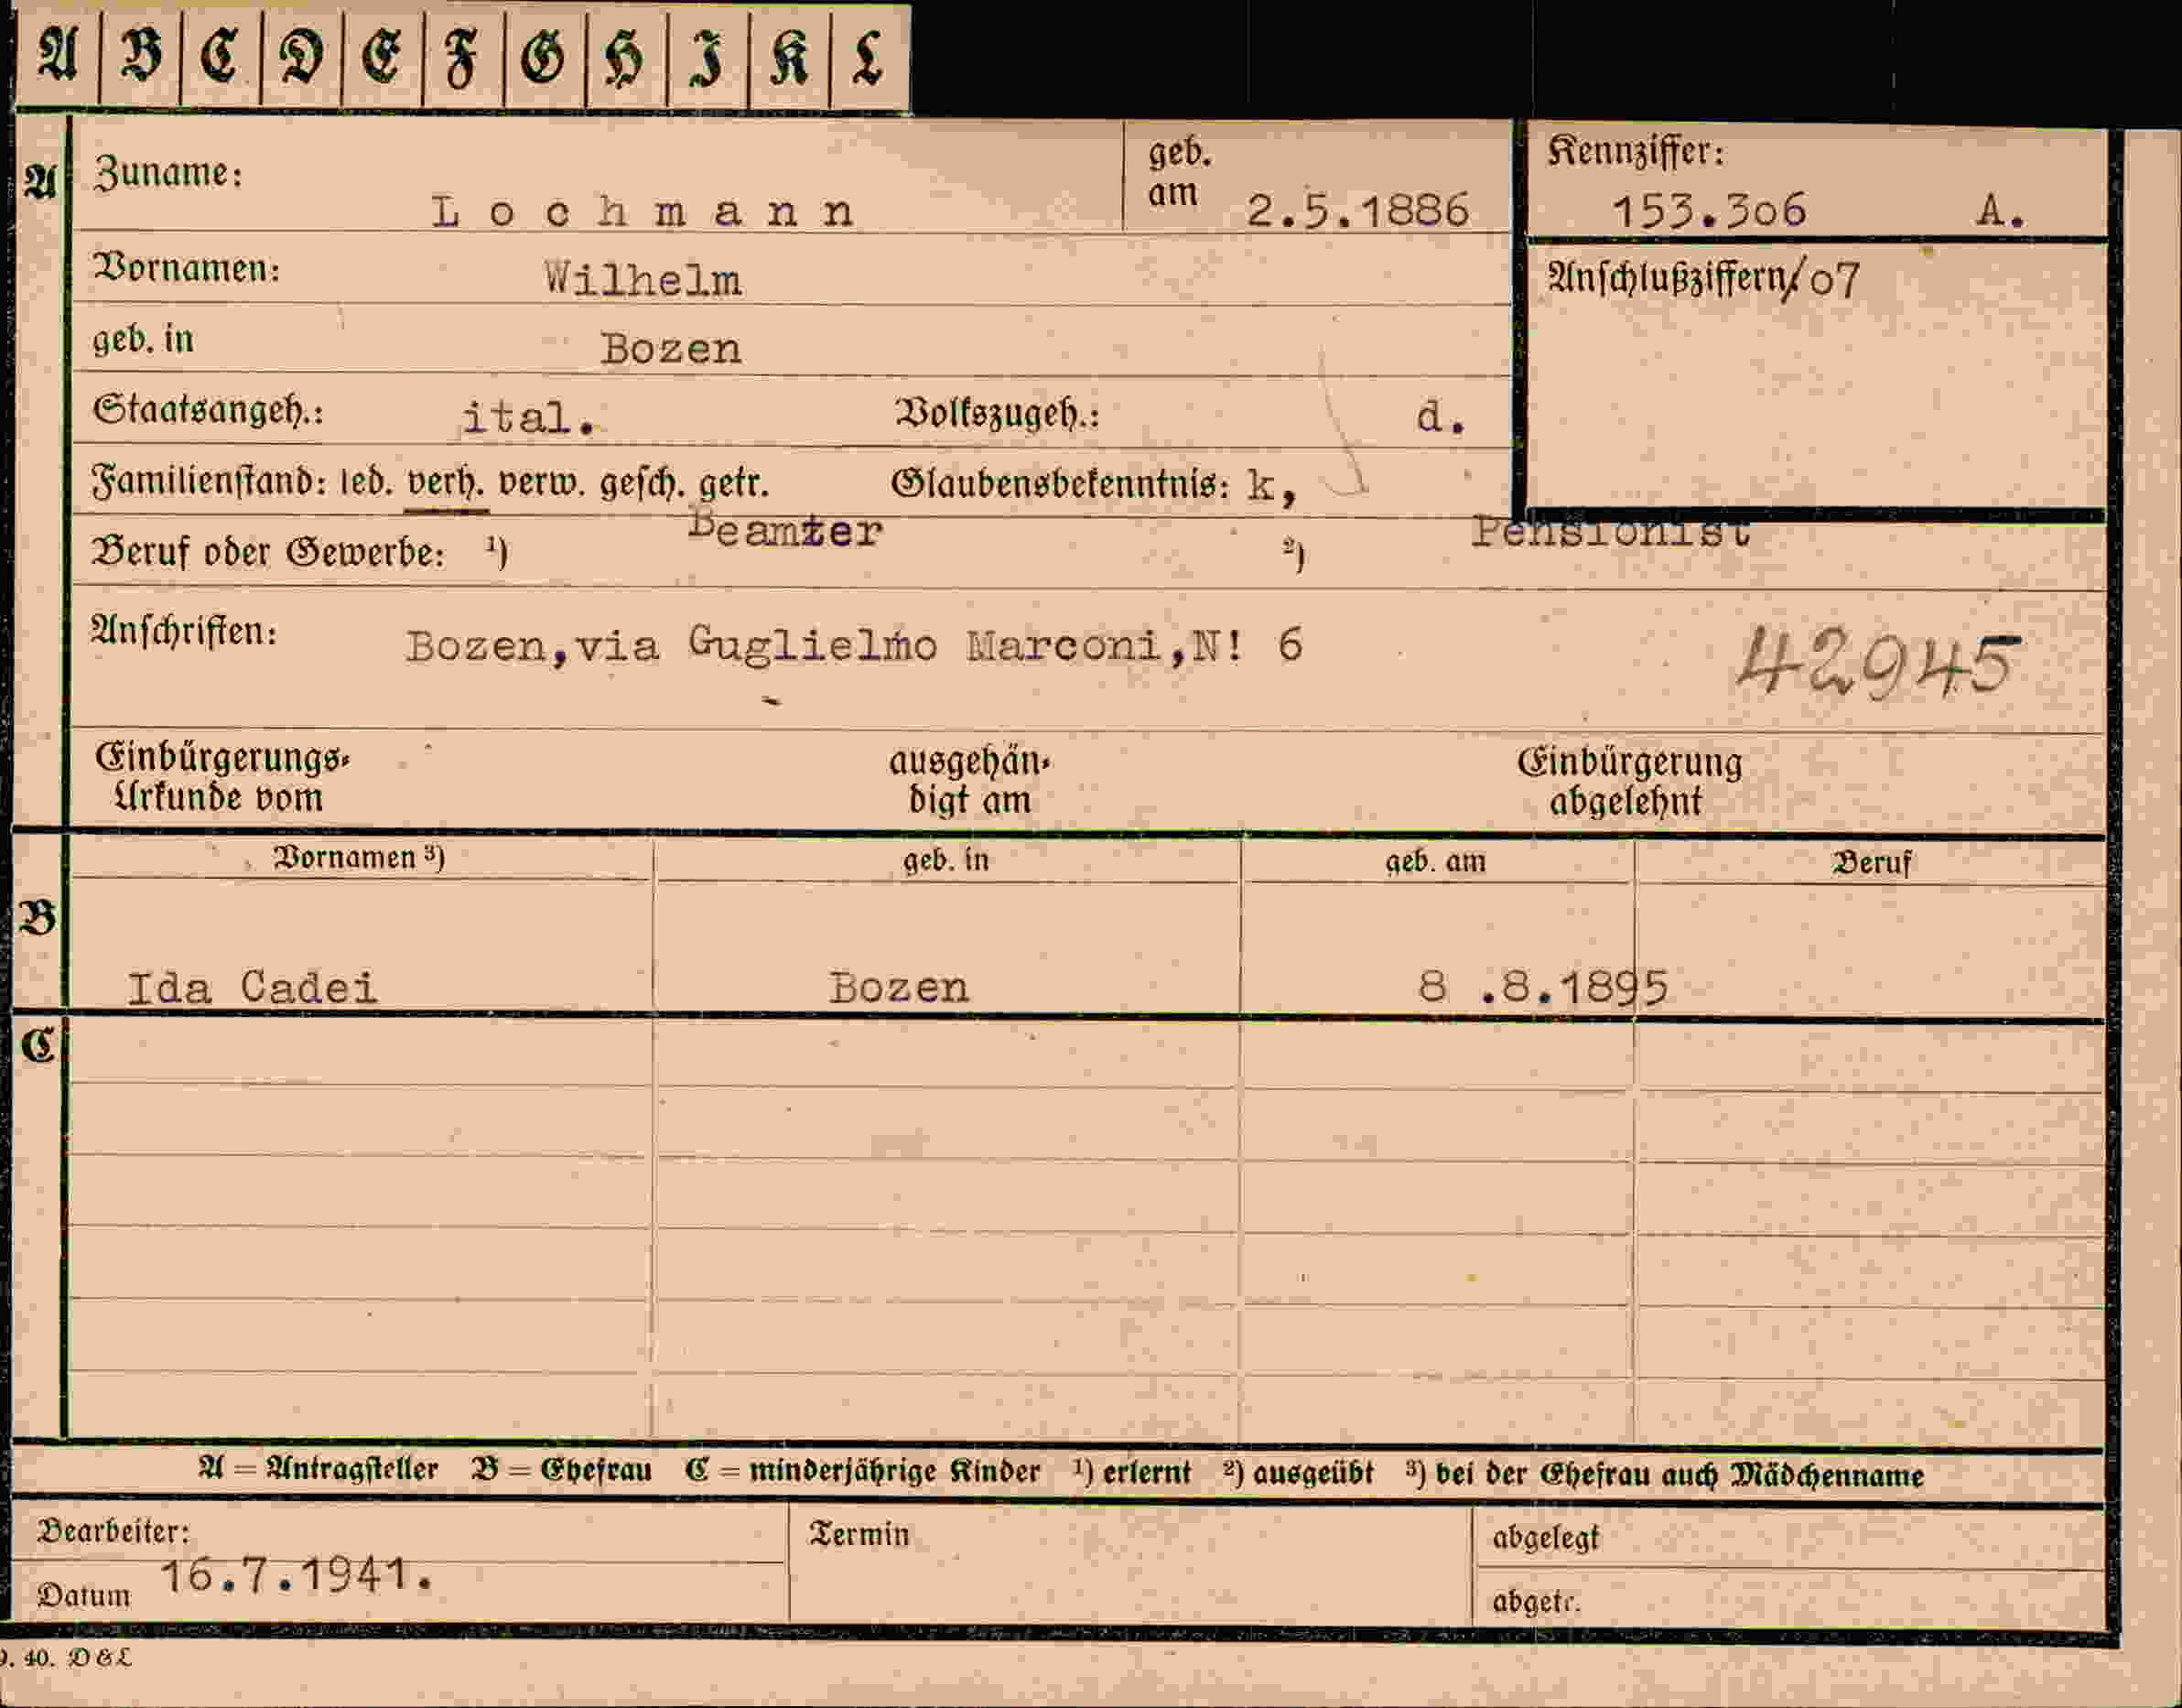 A B C D E F G H J K L
A Zuname: Lochmann geb. am 2.5.1886 Kennziffer: 153.306 A.
Vornamen: Wilhelm Anschlußziffern/07
geb. in Bozen
Staatsangeh.: ital. Volkszugeh.: d.
Familienstand: led. verh. verw. gesch. getr. Glaubensbekenntnis: k,
Beruf oder Gewerbe: ¹) Beamter ²) Pensionist
Anschriften: Bozen,via Guglielmo Marconi,N! 6 42945
Einbürgerungs- ausgehän- Einbürgerung
Urkunde vom digt am abgelehnt
Vornamen ³) geb. in geb. am Beruf
B
Ida Cadei Bozen 8 .8.1895
C
A = Antragsteller B = Ehefrau C = minderjährige Kinder ¹) erlernt ²) ausgeübt ³) bei der Ehefrau auch Mädchenname
Bearbeiter: Termin abgelegt
Datum 16.7.1941. abgetr.
9. 40. D&L